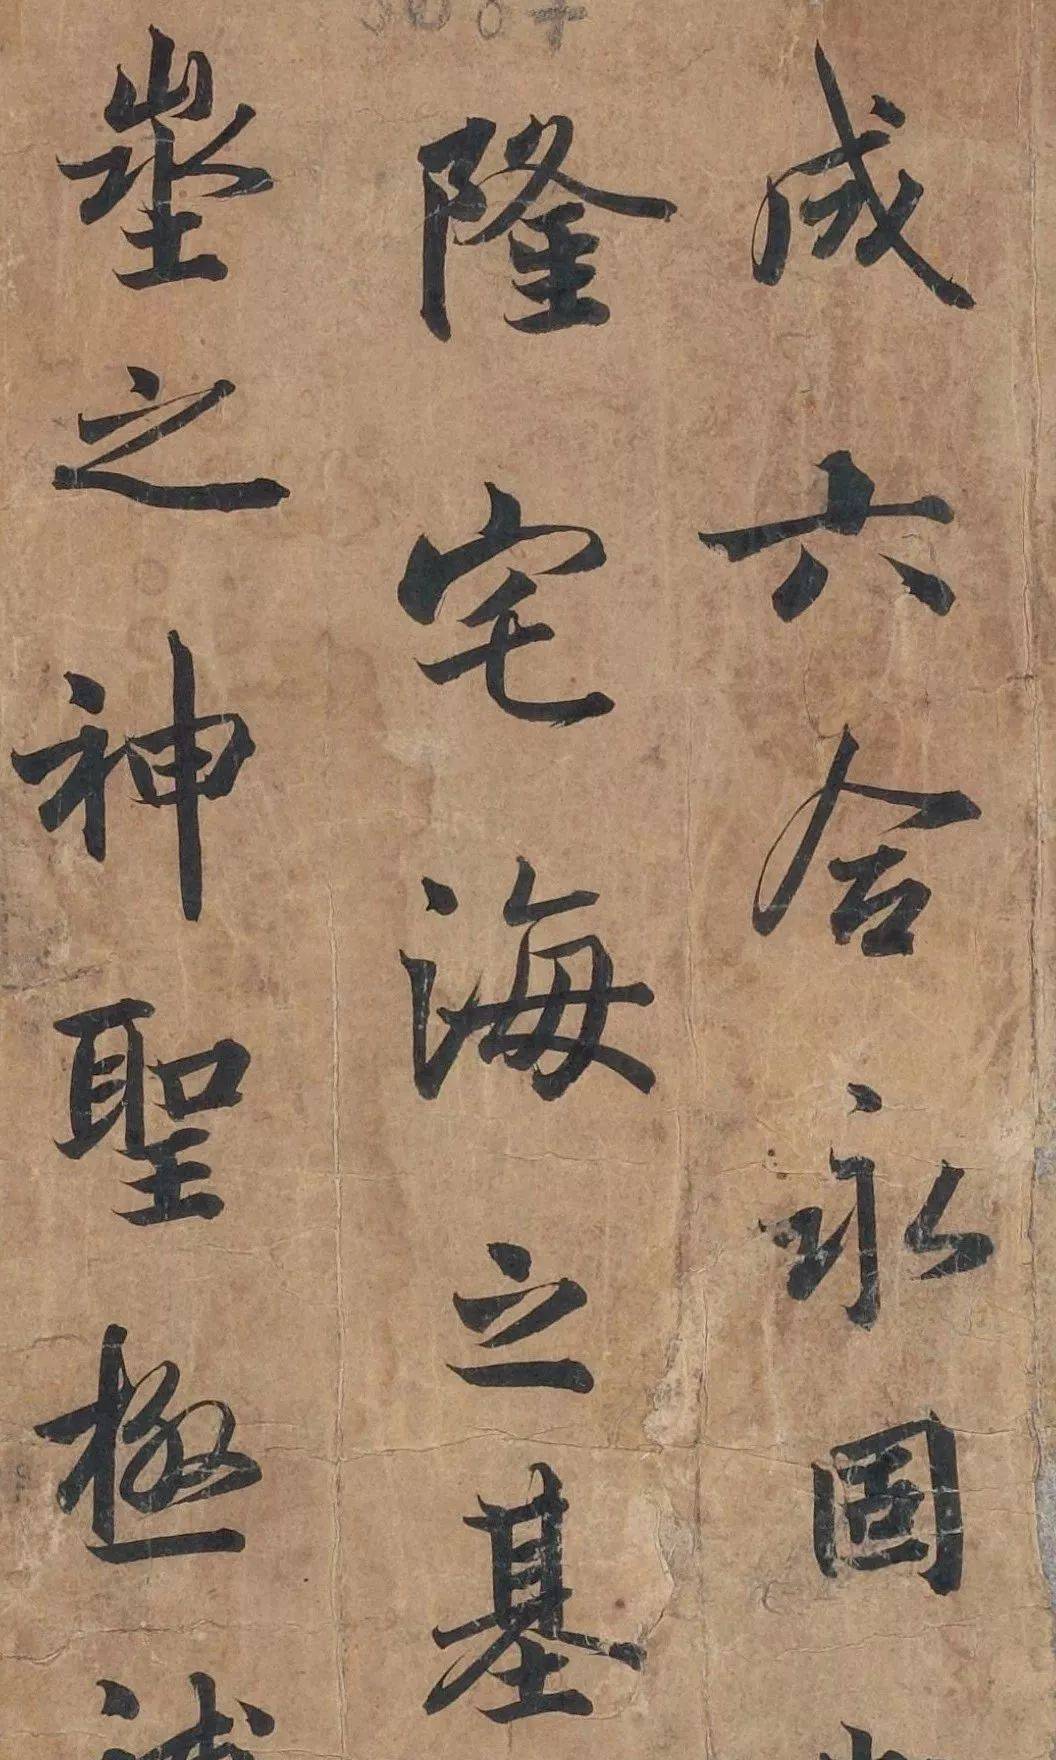 成六合永固
隆宅海之基
埊之神聖極